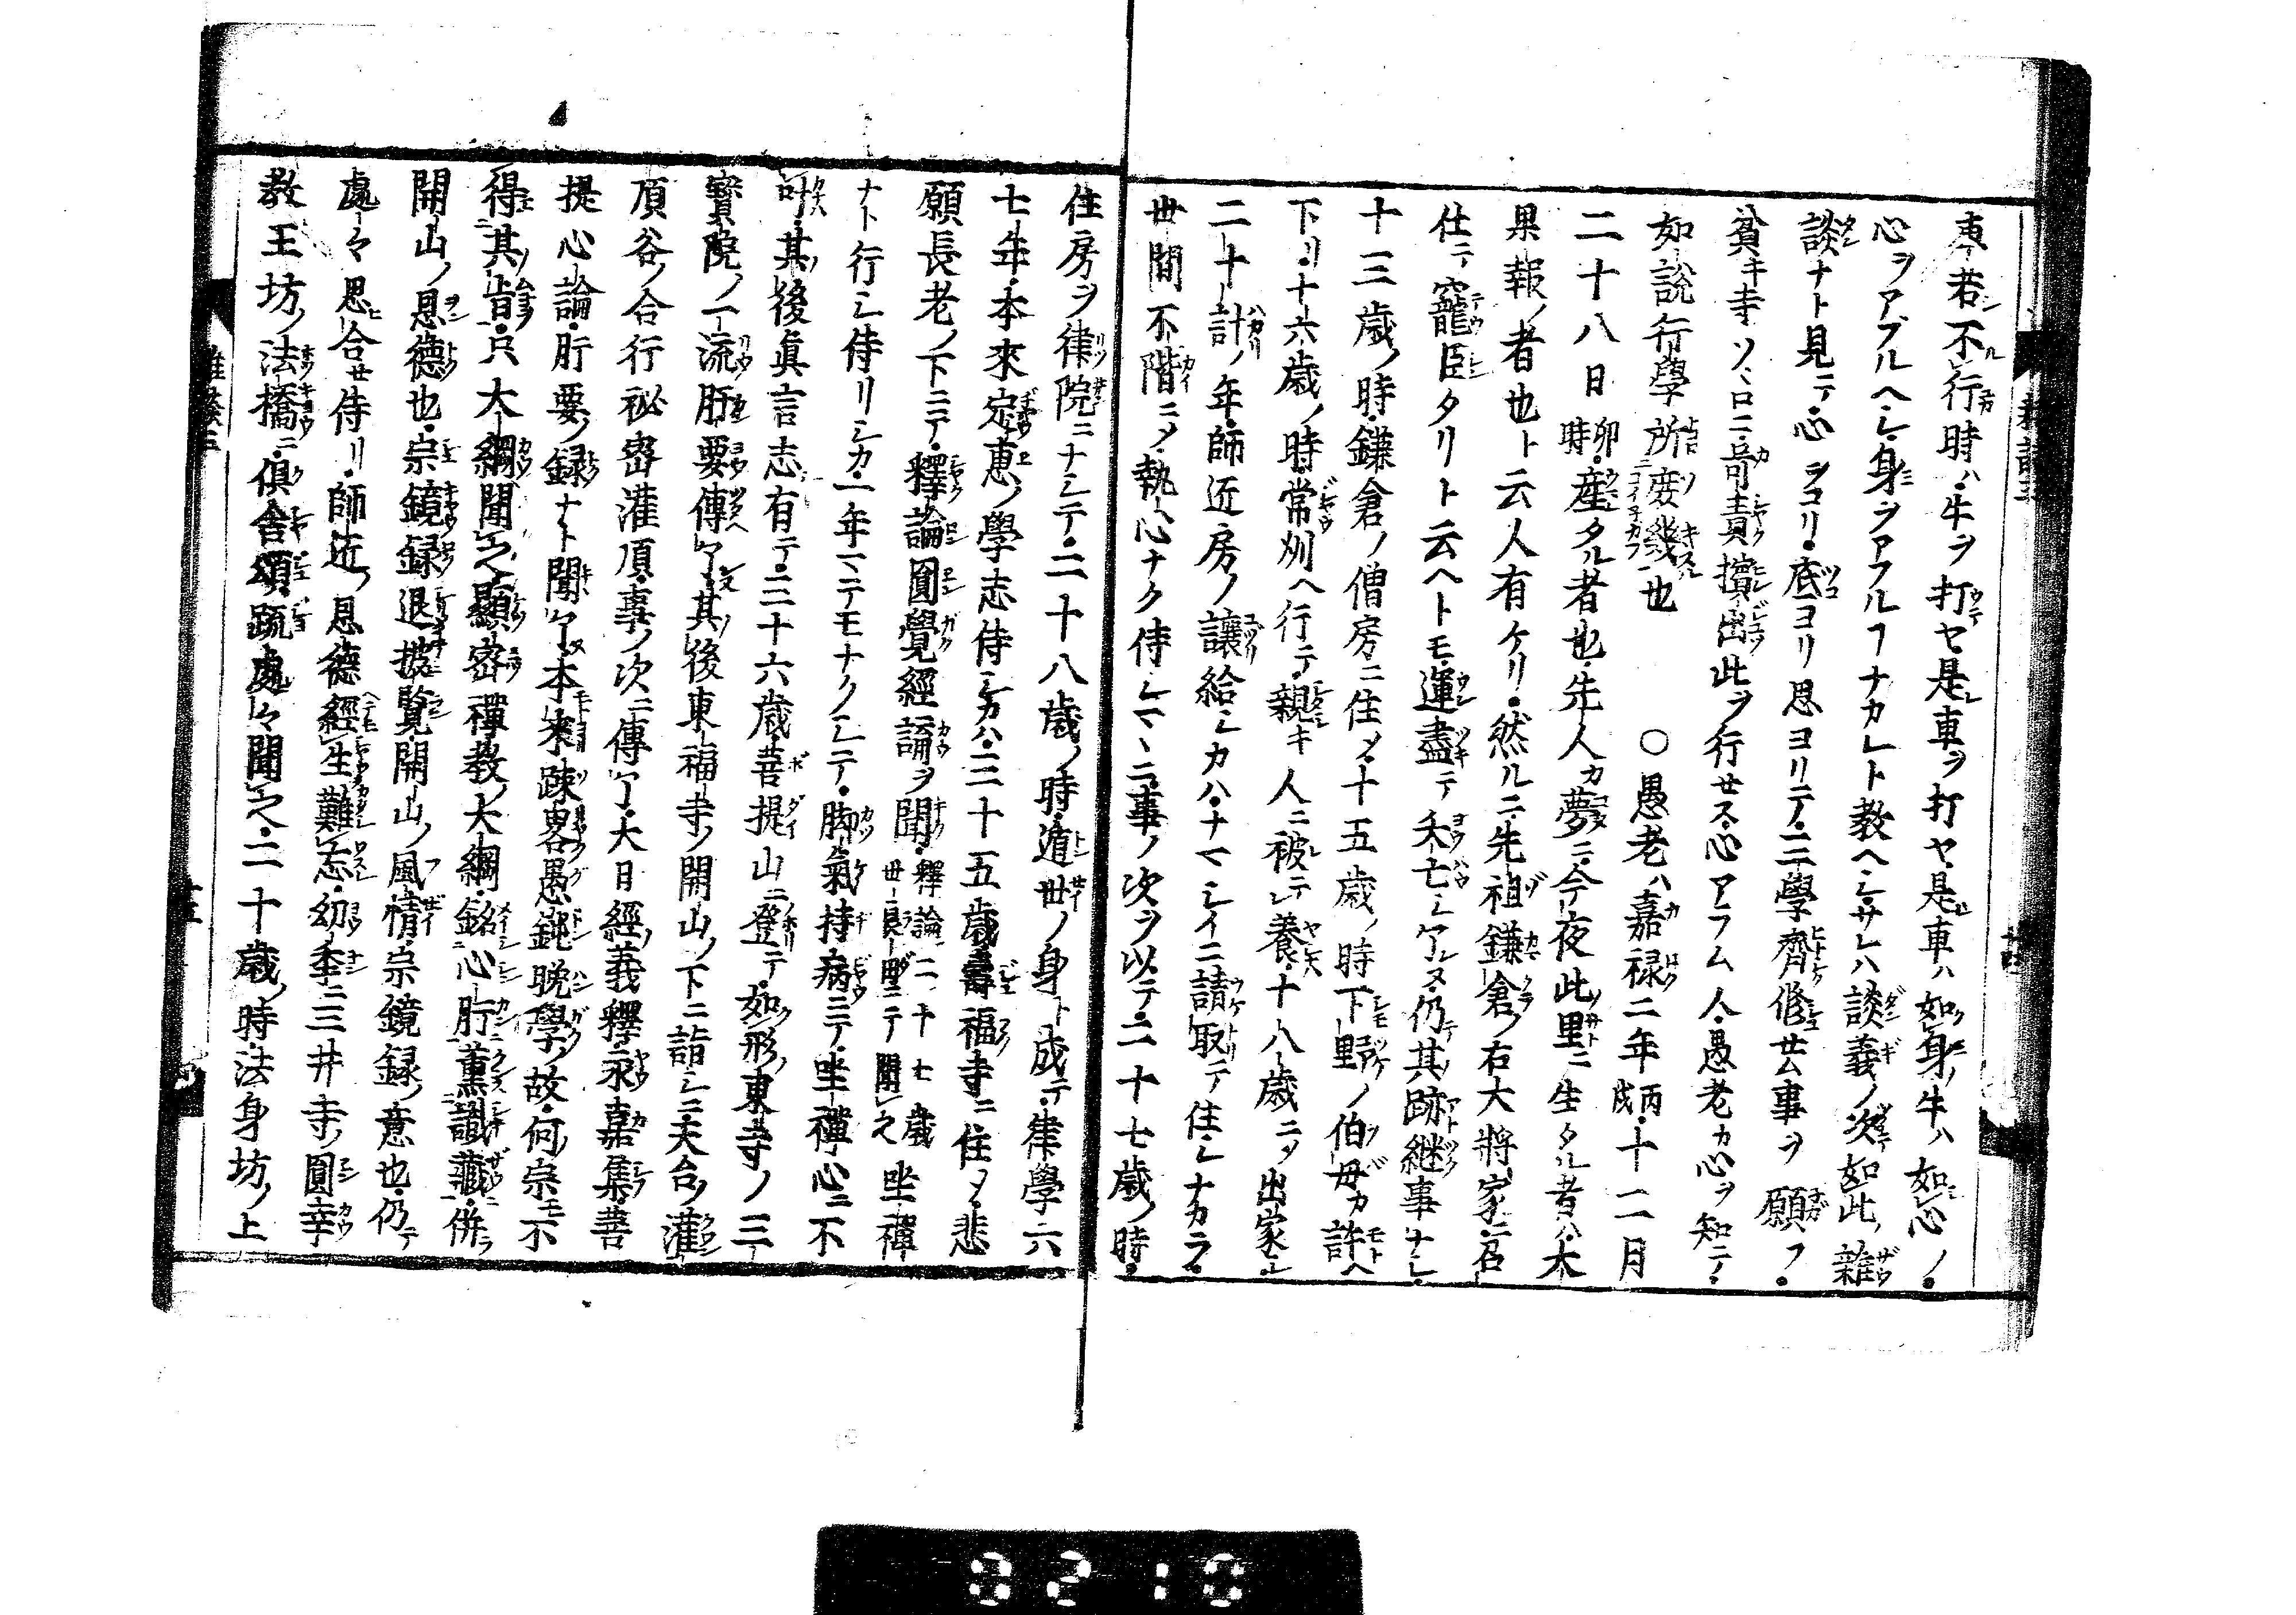 車若不行時ハ牛ヲ打ヤ是車ヲ打ヤ是車ハ如身牛ハ如心ノ
心ヲアブルヘシ身ヲアフルヿナカレト教ヘシサレハ談義ノ次如此ノ雜
談ナト見テ心ヲコリ底ヨリ思ヨリテ三學齊修世事ヲ願フ
貧キ寺ソヽロニ呵責擯出此ヲ行セス心アラム人愚老カ心ヲ知テ
如說行學所庶幾也 ○愚老ハ嘉禄二年丙戌十二月
二十八日卯時產タル者也先人カ夢ニ今夜此里ニ生タル者ハ大
果報ノ者也ト云人有ケリ然ルニ先祖鎌倉ノ右大將家ニ召
仕テ寵臣タリト云ヘトモ運盡テ夭亡シ了ヌ仍其跡継事ナシ
十三歳ノ時鎌倉ノ僧房ニ住メ十五歳ノ時下野ノ伯母カ許ヘ
下リ十六歳ノ時常州ヘ行テ親キ人ニ被テ養十八歳ニメ出家
二十計ノ年師近房ノ讓給シカハナマシイニ請取テ住シナカラ
世間不階ニメ執心ナク侍シマヽニ事ノ次ヲ以テ二十七歳ノ時
住房ヲ律院ニナシテ二十八歳ノ時遁世ノ身ト成テ律學六
七年本來定惠ノ學志侍シカハ三十五歳壽福寺ニ住メ悲
願長老ノ下ニテ釋論圓覺經論ヲ聞釋論二十七歳世良野ニテ聞之坐禪
ナト行シ侍リシカ一年マテモナクシテ脚氣持病ニテ坐禪心ニ不
叶其後眞言志有テ三十六歳菩提山ニ登テ如形東寺ノ三
寳院ノ一流肝要傳了其後東福寺ノ開山ノ下ニ詣シ天台ノ灌
頂谷ノ合行祕密灌頂事ノ次ニ傳了大日經義釋永嘉集菩
提心論肝要ノ録ナト聞了本来疎畧愚鈍晩學ノ故何宗モ不
得其旨只大綱聞之顯密禪教ノ大綱銘心肝薫識藏併
開山ノ恩德也宗鏡録退披覧開山ノ風情宗鏡録ノ意也仍テ
處々思合セ侍リ師近ノ恩德經生難忘幼年ニ三井寺ノ圓幸
教王坊ノ法橋ニ俱舍頌疏處々聞之二十歳ノ時法身坊ノ上